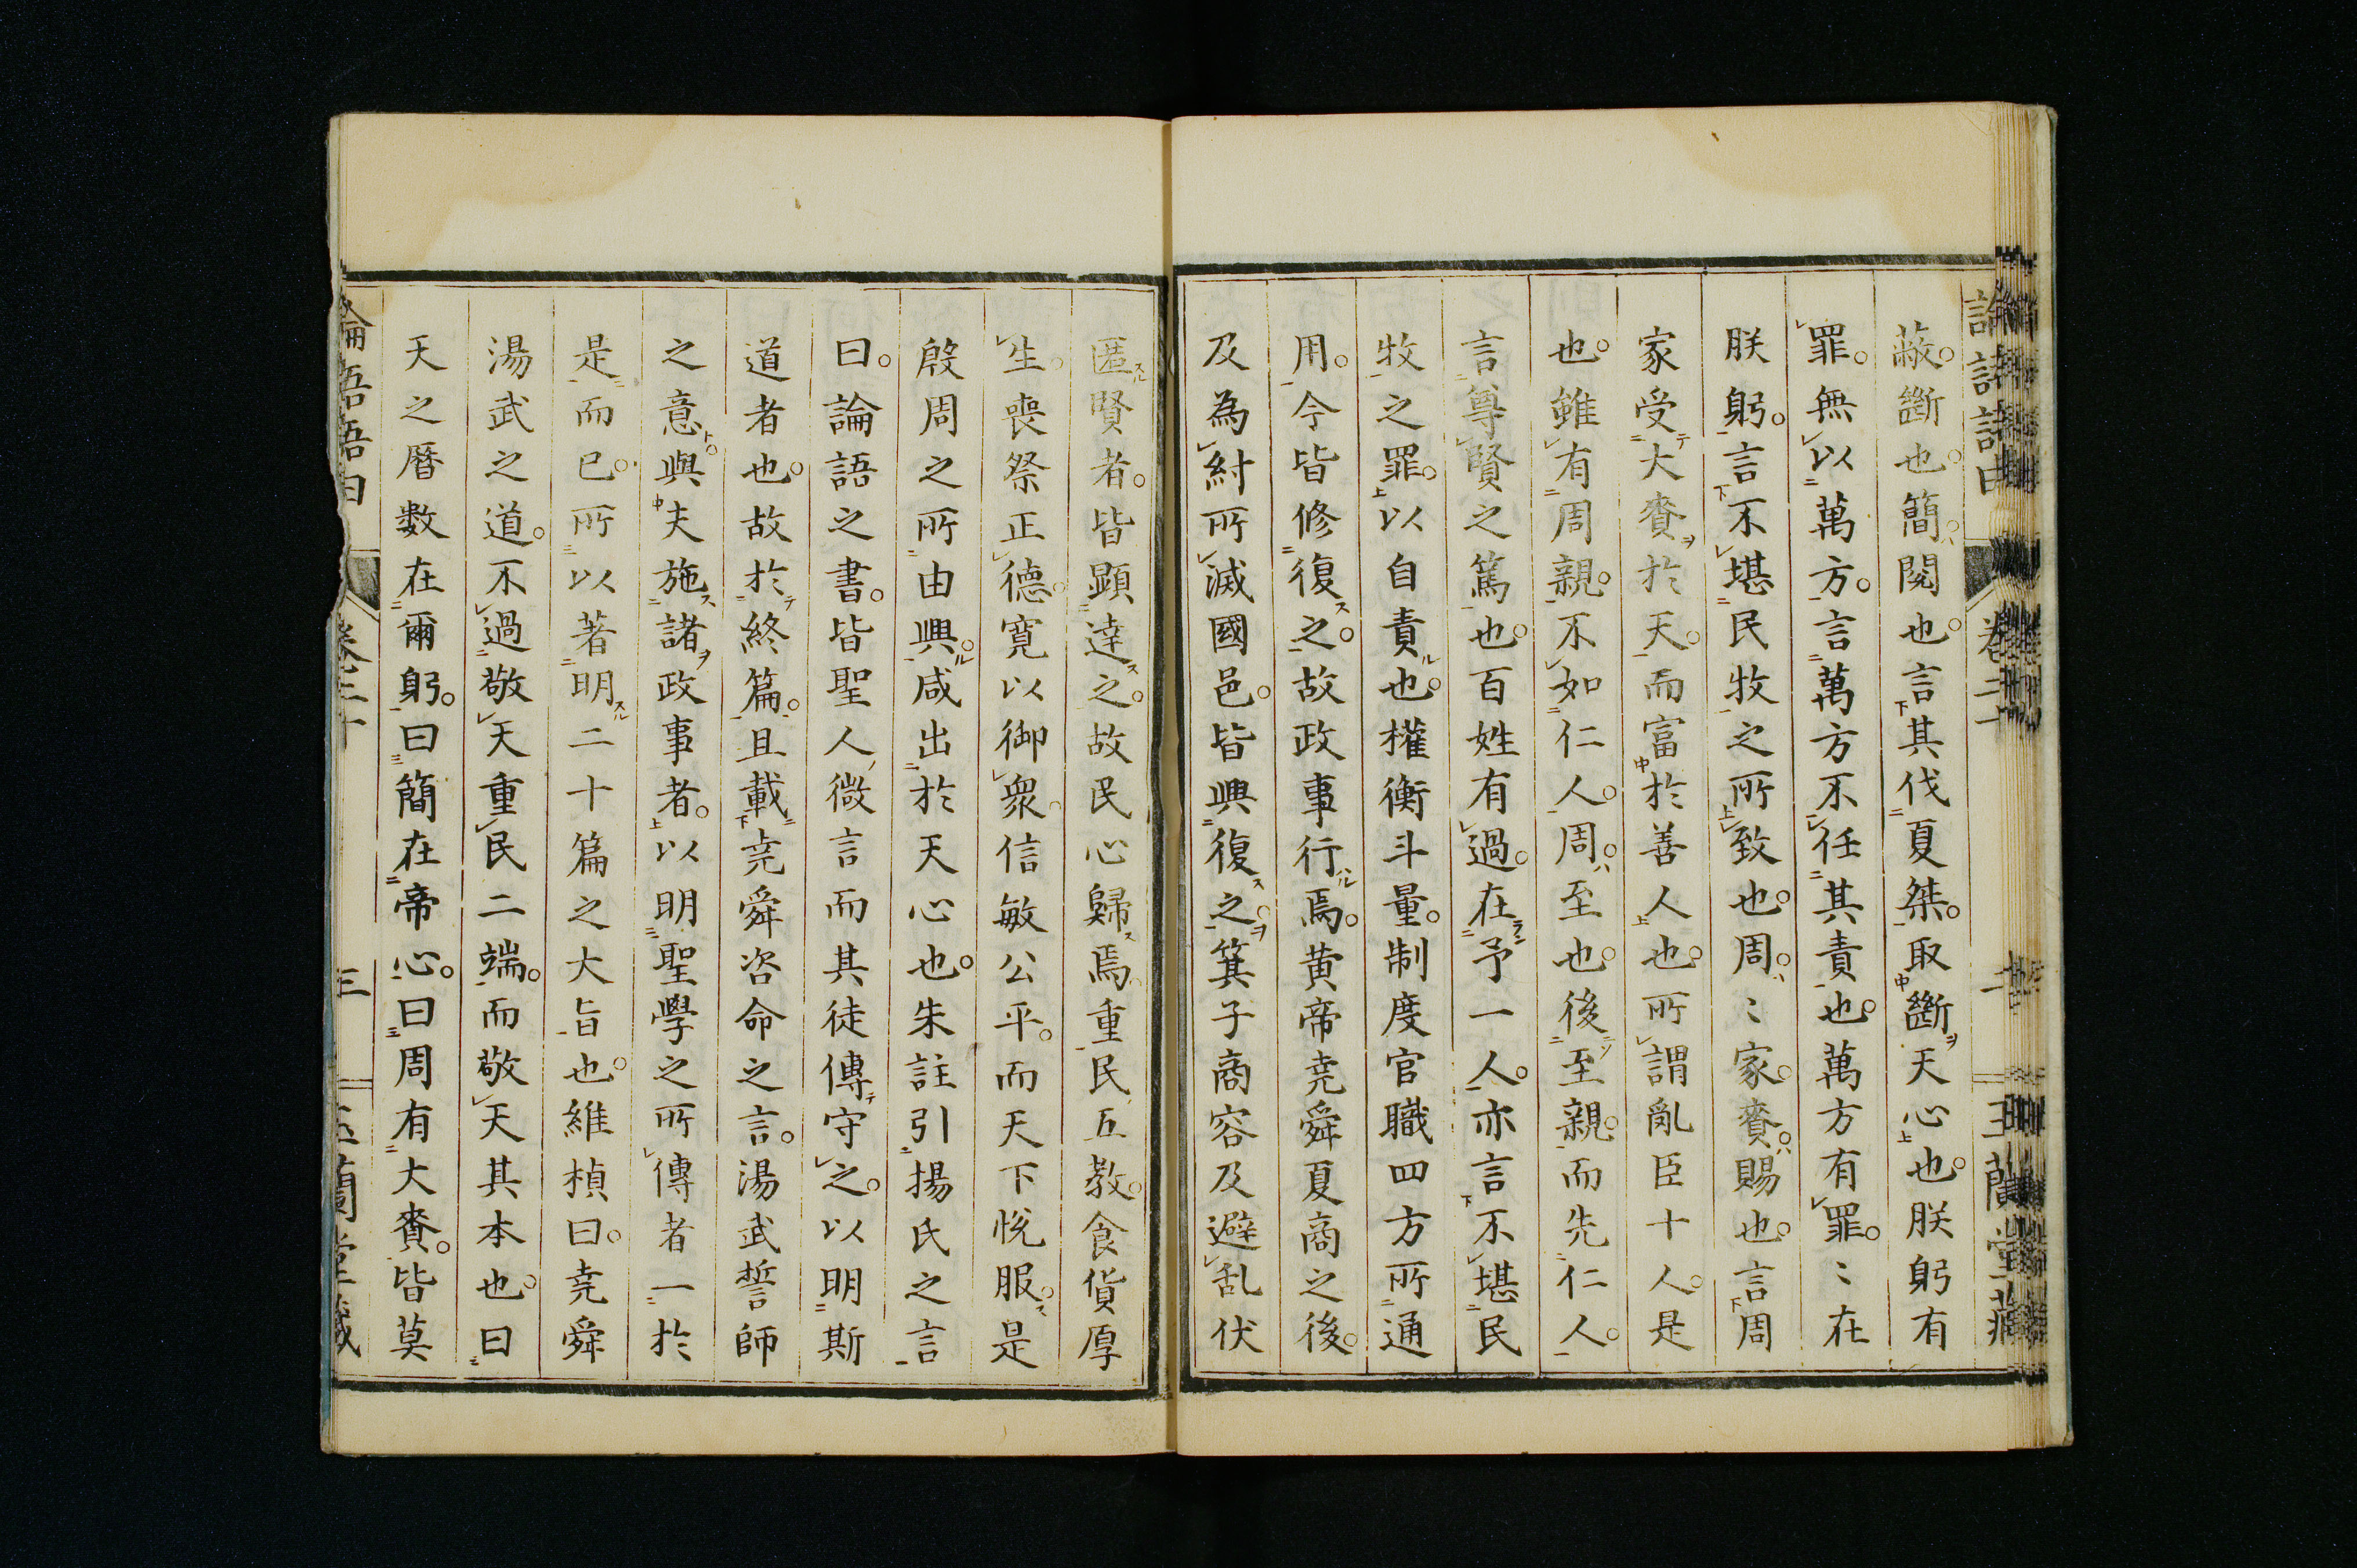 蔽。斷也。簡。閱也。言其伐夏桀。取斷天心也。朕躬有
罪。無以萬方。言萬方不任其責也。萬方有罪。〻在
朕躬。言不堪民牧之所致也。周。〻家。賚。賜也。言周
家受大賚於天。而富於善人也。所謂亂臣十人。是
也。雖有周親。不如仁人。周。至也。後至親。而先仁人。
言尊賢之篤也。百姓有過。在予一人。亦言不堪民
牧之罪。以自責也。權衡斗量。制度官職四方所通
用。今皆修復之。故政事行焉。黄帝堯舜夏商之後。
及為紂所滅國邑。皆興復之。箕子商容及避乱伏
匿賢者。皆顕達之。故民心歸焉。重民五教。食貨厚
生。喪祭正德。寛以御衆。信敏公平。而天下悅服。是
殷周之所由興。咸出於天心也。朱註引揚氏之言
曰。論語之書。皆聖人微言而其徒傳守之。以明斯
道者也。故於終篇。且載堯舜咨命之言。湯武誓師
之意。與夫施諸政事者。以明聖學之所傳者一於
是而已。所以著明二十篇之大旨也。維楨曰。堯舜
湯武之道。不過敬天重民二端。而敬天其本也。曰
天之曆数在爾躬。曰簡在帝心。曰周有大賚。皆莫
卷二十
三